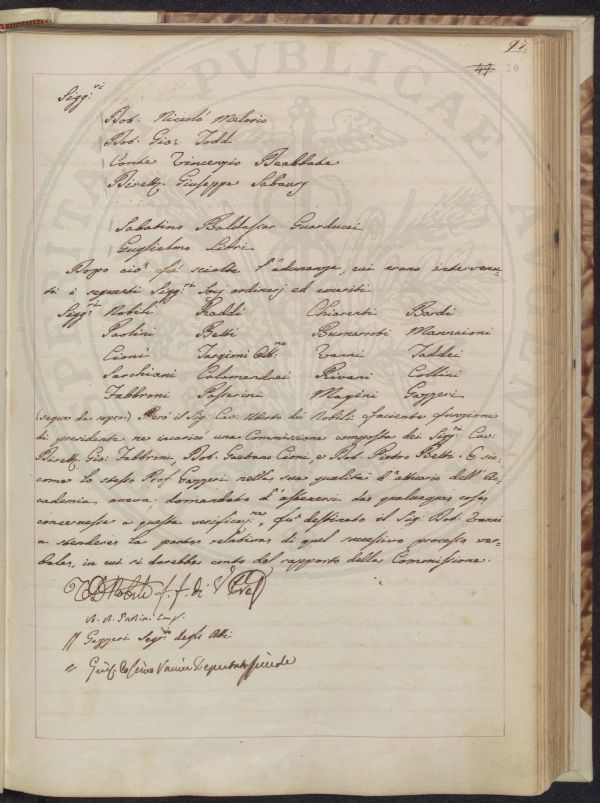 92
44 20
Sigg.ri
Dot. Niccolò
Dot. Gio: Todd
Conte Vincenzio Beabbate
Dirett. Giuseppe
Sabatino Baldassar Guarducci
Guglielmo Libri
Dopo ciò fù sciolta l'adunanza, cui erano intervenu-
ti i seguenti Sigg.ri Socj ordinarj ed emeriti
Sigg.ri Nobili Raddi Chiarenti Bardi
Paolini Betti Buonarroti Mannaioni
Cioni Targioni Ott.no Vanni Taddei
Sarchiani Calamandrei Rivani Collini
Fabbroni Passerini Magini Gazzeri
(segue da sopra) Però il Sig. Cav. Uberto dei Nobili facente funzione
di presidente ne incaricò una Commissione composta dei Sigg.ri Cav:
Dirett. Gio: Fabbroni, Dot. Gaetano Cioni, e Dot. Pietro Betti. E sic-
come lo stesso Prof. Gazzeri nella sua qualità d'attuario dell'Ac-
cademia aveva domandato d'astenersi da qualunque cosa
concernesse a questa verificaz.ne, fù destinato il Sig. Dot. Vanni
a stendere la parte relativa di quel successivo processo ver-
bale, in cui si darebbe conto del rapporto della Commissione.
f. f. di
Gazzeri Seg.rio degli Atti